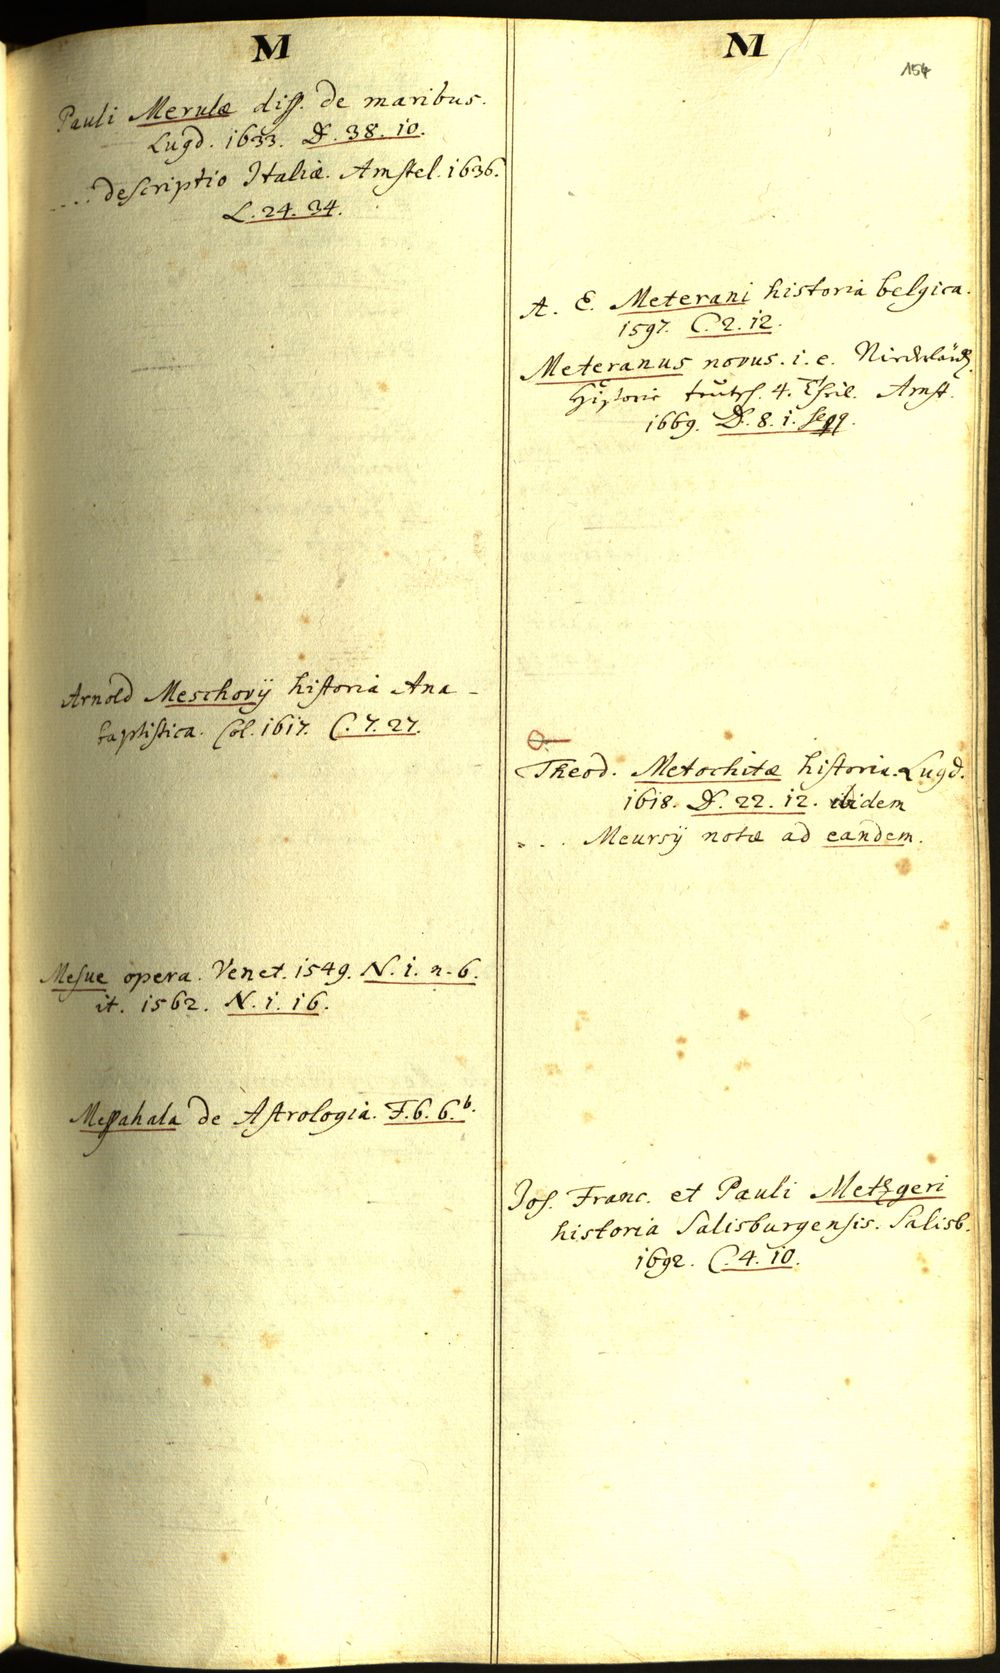 M
Pauli Merulæ diss. de maribus.
Lugd. 1633. D. 38. 10.
... descriptio Italiæ. Amstel. 1636.
L. 24. 34.
Arnold Meschovij historia Ana-
baptistica. Col. 1617. C. 7. 27.
Mesue opera. Venet. 1549. N. i. n. 6.
it. 1562. N. i. 16.
Messahala de Astrologia. F. 6. 6.b.
M
154
A. E. Meterani historia belgica.
1597. C. 2. 12.
Meteranus novus. i. e. Niederländ.
Historie teutsch. 4. Theil. Amst.
1669. D. 8. i. seqq.
Theod. Metochitæ historia. Lugd.
1618. D. 22. 12. ibidem
... Meursij notæ ad eandem.
Jos. Franc. et Pauli Metzgeri
historia Salisburgensis. Salisb.
1692. C. 4. 10.